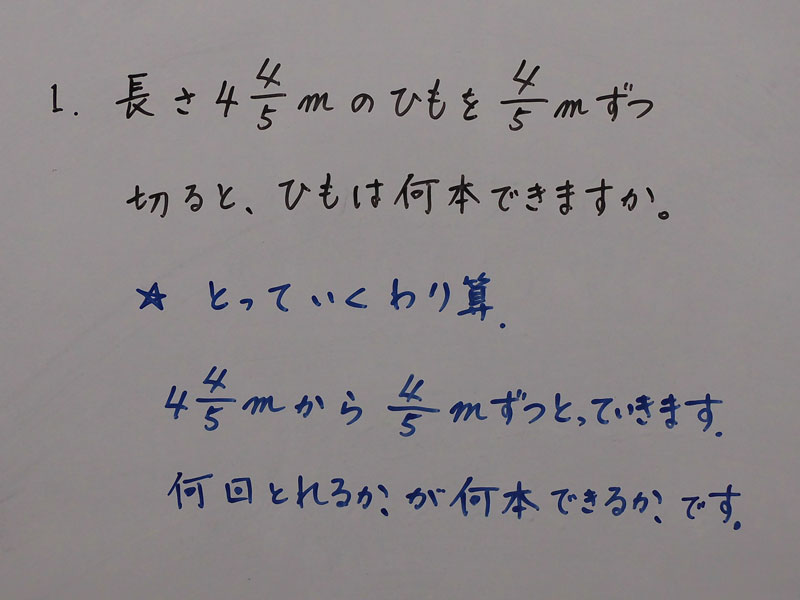 1. 長さ4 4/5 mのひもを 4/5 mずつ
切ると、ひもは何本できますか。
☆ とっていくわり算.
4 4/5 mから 4/5 mずつとっていきます.
何回とれるか?が何本できるか?です.